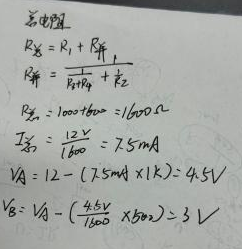 总电阻
R总 = R₁ + R并
R并 = 1/(1/(R₃+R₄) + 1/R₂)
R总 = 1000+600 = 1600Ω
I总 = 12V/1600 = 7.5mA
VA = 12 - (7.5mA × 1K) = 4.5V
VB = VA - (4.5V/1500 × 500) = 3V